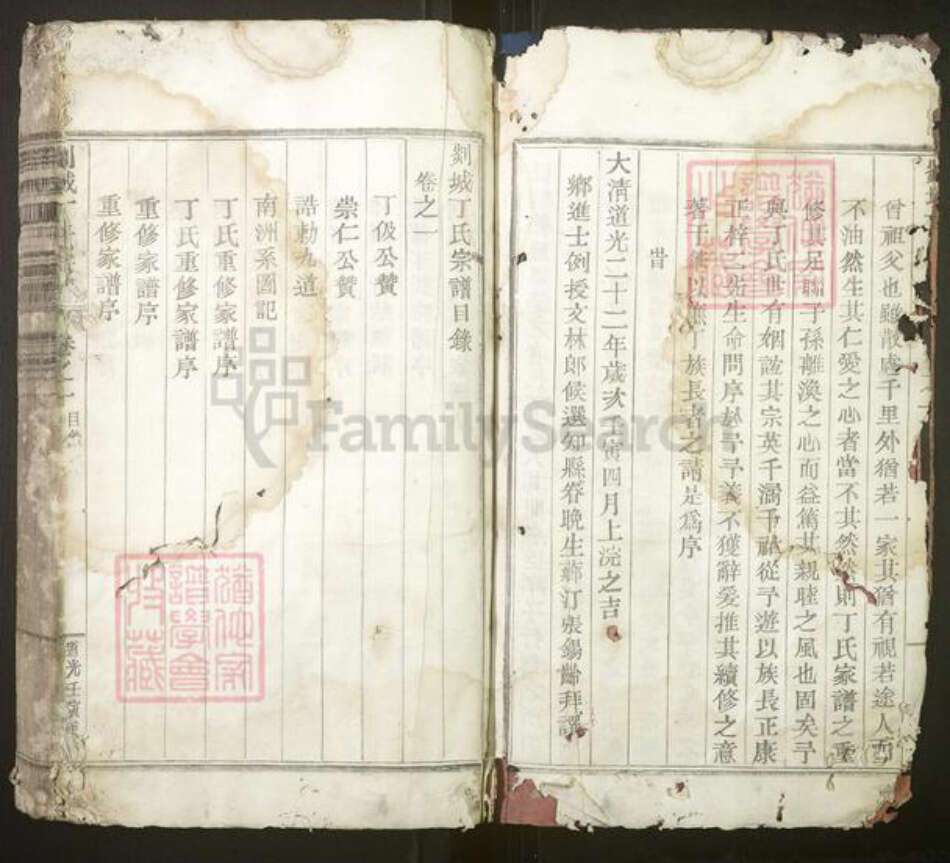 曾祖父也雖散處千里外猶若一家其猶有視若途人而
不油然生其仁愛之心者當不其然然則丁氏家譜之重
修其足聯子孫離渙之心而益篤其親睦之風也固矣予
與丁氏世有姻誼其宗英千濶千猷從予遊以族長正康
正梓二先生命問序於予予義不獲辭爰推其續修之意
著于篇以應丁族長者之請是爲序
旹
大清道光二十二年歲次壬寅四月上浣之吉
鄉進士例授文林郎候選知縣眷晩生汀張錫齡拜譔
剡城丁氏宗譜目錄
卷之一
丁伋公贊
崇仁公贊
誥勅九道
南洲系圖記
丁氏重修家譜序
丁氏重修家譜序
重修家譜序
重修家譜序
剡城丁氏宗譜
卷之一
目錄
道光壬寅年
譜學會
收藏
FamilySearch